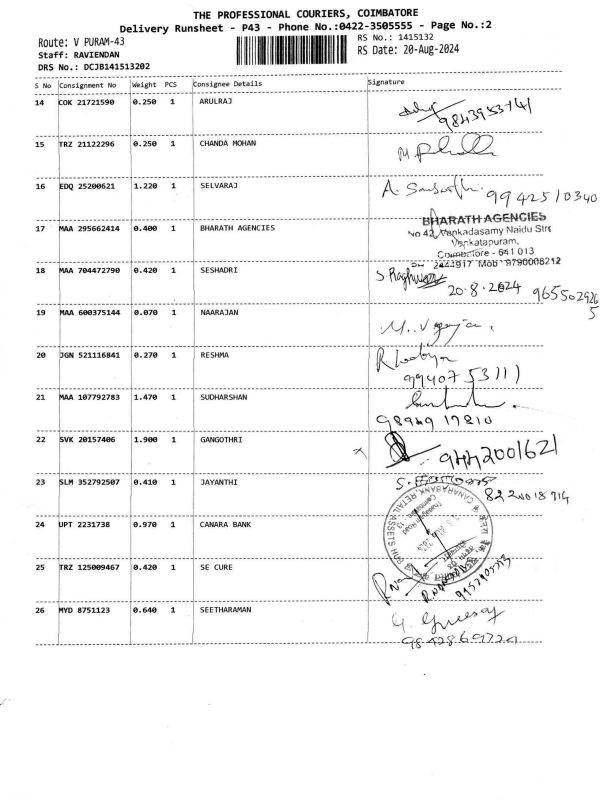 THE PROFESSIONAL COURIERS, COIMBATORE
Delivery Runsheet - P43 - Phone No.:0422-3505555 - Page No.:2
Route: V PURAM-43
RS No.: 1415132
Staff: RAVIENDAN
RS Date: 20-Aug-2024
DRS No.: DCJB141513202
S No Consignment No Weight PCS Consignee Details Signature
14 COK 21721590 0.250 1 ARULRAJ
15 TRZ 21122296 0.250 1 CHANDA MOHAN
16 EDQ 25200621 1.220 1 SELVARAJ 9942510340
17 MAA 295662414 0.400 1 BHARATH AGENCIES
BHARATH AGENCIES
No 42, Venkadasamy Naidu Str
Venkatapuram,
Coimbatore - 641 013
2444917 Mob 9790008212
18 MAA 704472790 0.420 1 SESHADRI
20.8.2024 9655029265
19 MAA 600375144 0.070 1 NAARAJAN
20 JGN 521116841 0.270 1 RESHMA
9940753111
21 MAA 107792783 1.470 1 SUDHARSHAN
98949 17810
22 SVK 20157406 1.900 1 GANGOTHRI
9442001621
23 SLM 352792507 0.410 1 JAYANTHI
24 UPT 2231738 0.970 1 CANARA BANK
25 TRZ 125009467 0.420 1 SE CURE
26 MYD 8751123 0.640 1 SEETHARAMAN